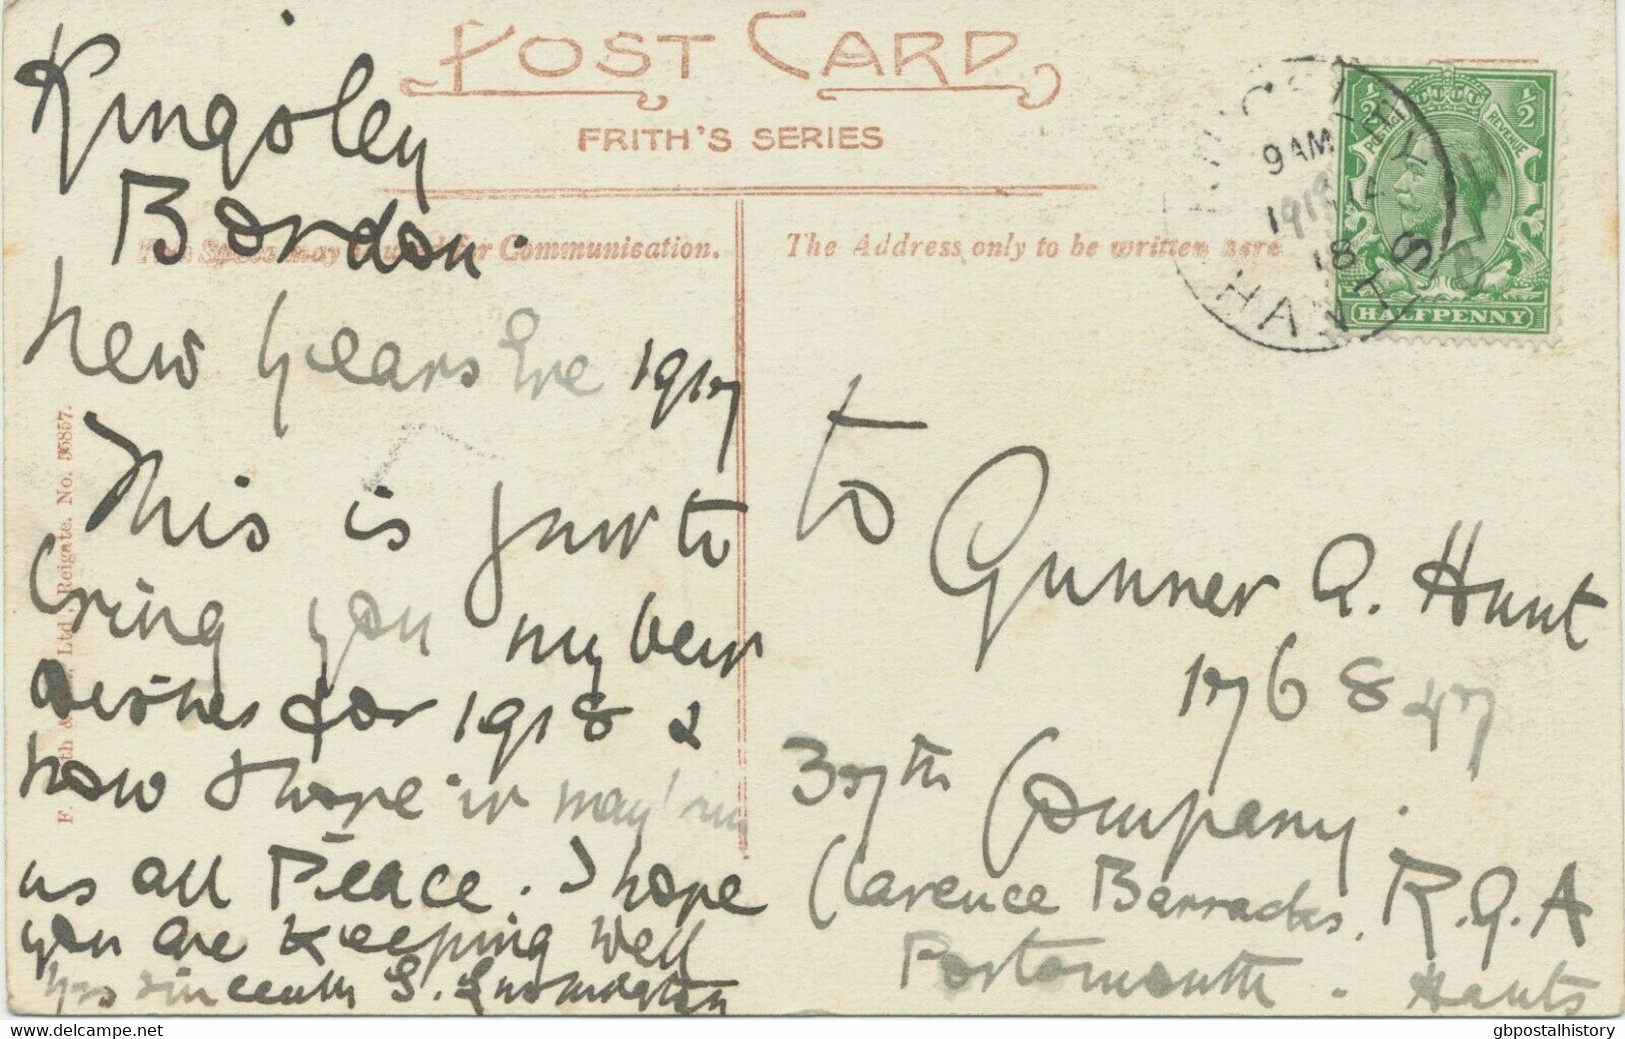 POST CARD
FRITH'S SERIES
Kingsley
Bordon.
This Space may be used for Communication.
The Address only to be written here
New Years Eve 1917
This is just to
bring you my best
wishes for 1918 &
how I hope it may bring
us all Peace. I hope
you are keeping well
Yrs sincerely G.
To
Gunner A. Hunt
176847
37th Company.
R.G.A
Clarence Barracks.
Portsmouth. Hants
F. Frith & Co., Ltd., Reigate. No. 55857.
KINGSLEY
9 AM
1 JA
18
HANTS
1918
½ ½
POSTAGE REVENUE
HALFPENNY
gbpostalhistory
www.delcampe.net